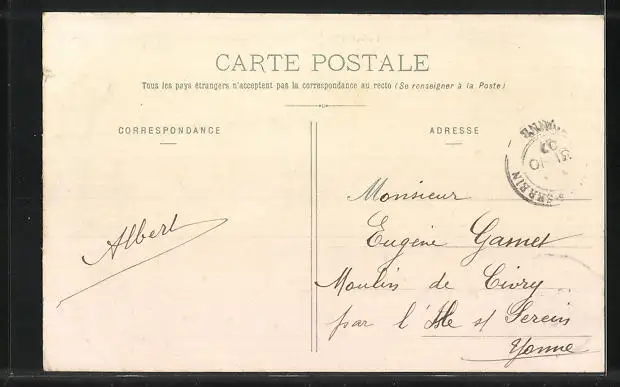 CARTE POSTALE
Tous les pays étrangers n'acceptent pas la correspondance au recto (Se renseigner à la Poste)
CORRESPONDANCE
ADRESSE
Albert
Monsieur
Eugène Gamet
Moulin de Civry
par l'Isle s/ Serein
Yonne